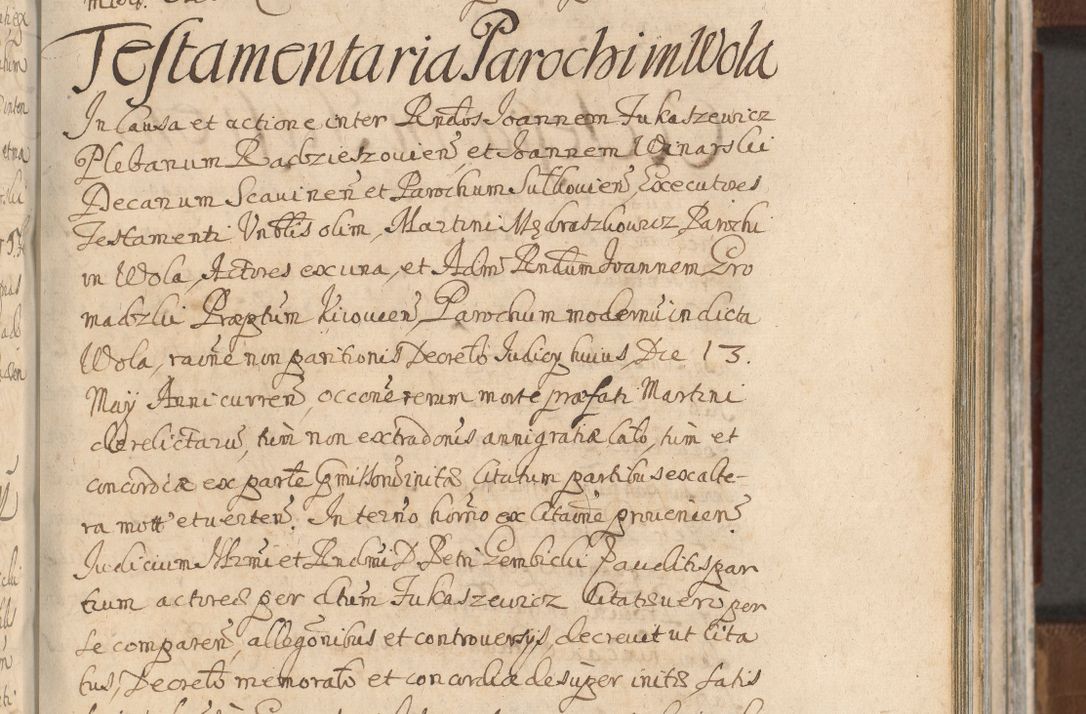 Testamentaria Parochi in Wola
In Causa et actione inter Rndos Joannem Łukaszewicz
Plebanum Radzieszouien̄ et Joannem Winarski
Decanum Scauinen̄ et Parochum Sułkouien̄ Executores
Testamenti Vnblis olim Martini Mędraszkowicz Parochi
in Wola, Actores ex una, et Adm Rndum Joannem Gro
madzki Præptum Kiiouien̄ Parochum modernū in dicta
Wola, raōne non paritionis Decreto Judicÿ huius, Die 13.
Maÿ Anni curren̄, occōne rerum morte præfati Martini
derelictarū, tum non extradonis anni gratiæ Cało, tum et
concordiæ ex parte initæ Citatum partibus ex alte-
ra mott et verten̄. In termo horno ex Citaōne prouenien̄
Judicium Illrmi et Rndmi D. Petri Gembicki P auditis par
tium actores per dtum Łukaszewicz Citati vero per
se comparen̄ allegōnibus et controversÿs, decreuit ut Cita
tus, Decreto memorato et concordiæ desuper initæ satis